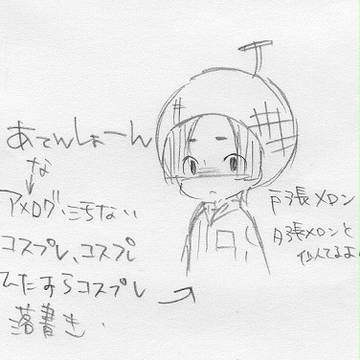 あてんしょーん
な
アメログ
コスプレ、コスプレ
ひたすらコスプレ
落書き.
戸張メロン
夕張メロンと
似てるよ